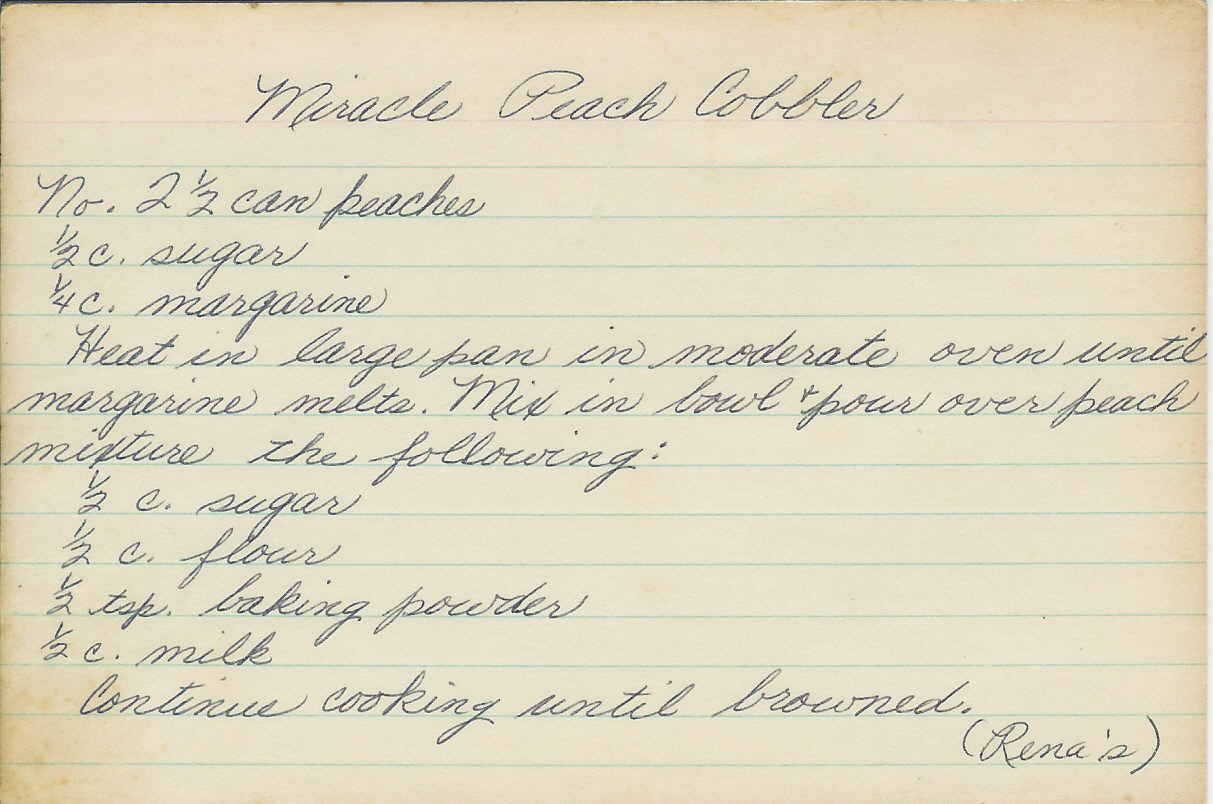 Miracle Peach Cobbler
No. 2 1/2 can peaches
1/2 c. sugar
1/4 c. margarine
Heat in large pan in moderate oven until
margarine melts. Mix in bowl & pour over peach
mixture the following:
1/2 c. sugar
1/2 c. flour
1/2 tsp. baking powder
1/2 c. milk
Continue cooking until browned.
(Rena's)